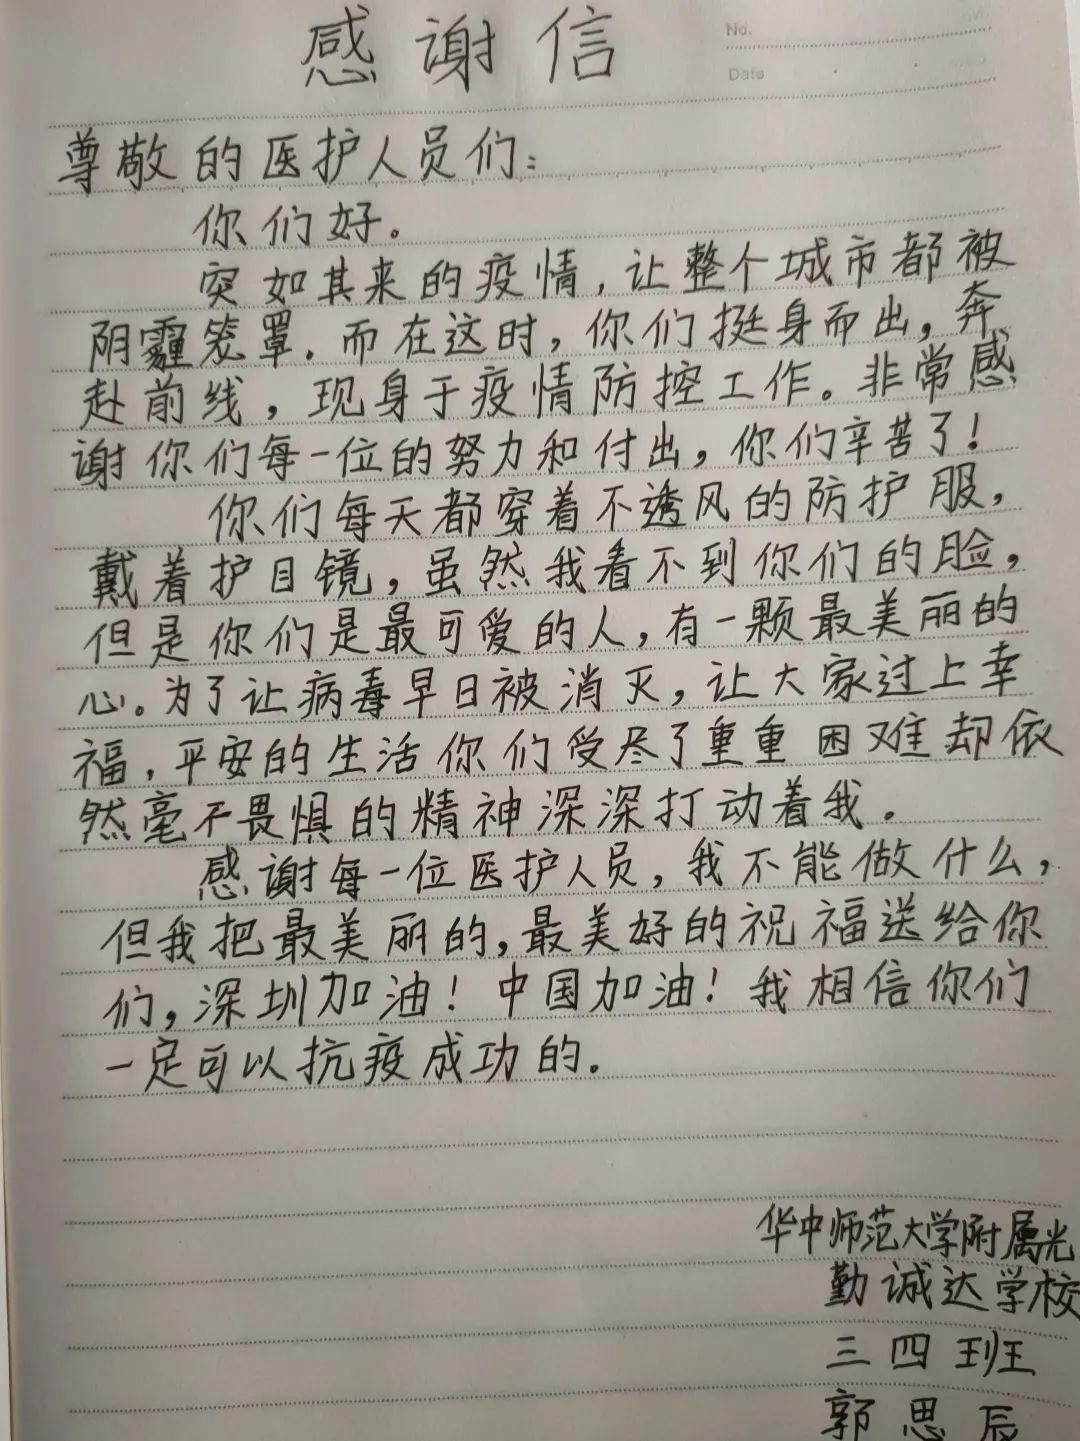 感谢信
No.
Date
尊敬的医护人员们：
你们好。
突如其来的疫情，让整个城市都被
阴霾笼罩。而在这时，你们挺身而出，奔
赴前线，现身于疫情防控工作。非常感
谢你们每一位的努力和付出，你们辛苦了！
你们每天都穿着不透风的防护服，
戴着护目镜，虽然我看不到你们的脸，
但是你们是最可爱的人，有一颗最美丽的
心。为了让病毒早日被消灭，让大家过上幸
福，平安的生活你们受尽了重重困难却依
然毫不畏惧的精神深深打动着我。
感谢每一位医护人员，我不能做什么，
但我把最美丽的，最美好的祝福送给你
们，深圳加油！中国加油！我相信你们
一定可以抗疫成功的。
华中师范大学附属光
勤诚达学校
三四班
郭思辰